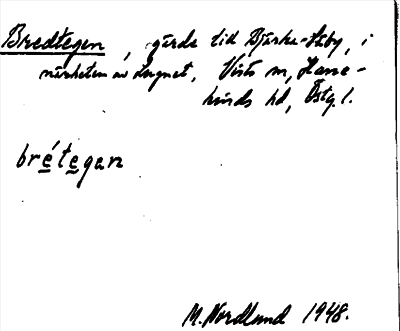 Bredtegen, gärde till Bjärka-Säby, i
närheten av Lugnet, Vists sn, Hane-
kinds hd, Östg. l.
brétegan
M. Nordlund 1948.